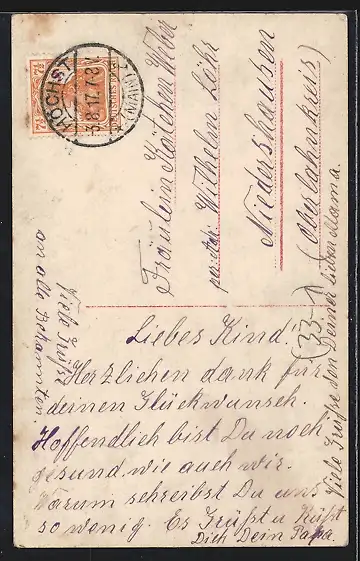 HÖCHST
(MAIN)
3.8.17. 7-8 V.
7½
7½
Fräulein Kätchen Weber
per Adr. Wilhelm Löhr
Niedershausen
(Oberlahnkreis)
(33-1)
Liebes Kind!
Herzliehen dank für
deinen Glückwunsch.
Hoffendlich bist Du noch
gesund, wie auch wir.
Warum schreibst Du uns
so wenig. Es Grüßt u Küßt
Dich Dein Papa.
Viele Grüße
an alle Bekannten.
Viele Grüße von Deiner lieben Mama